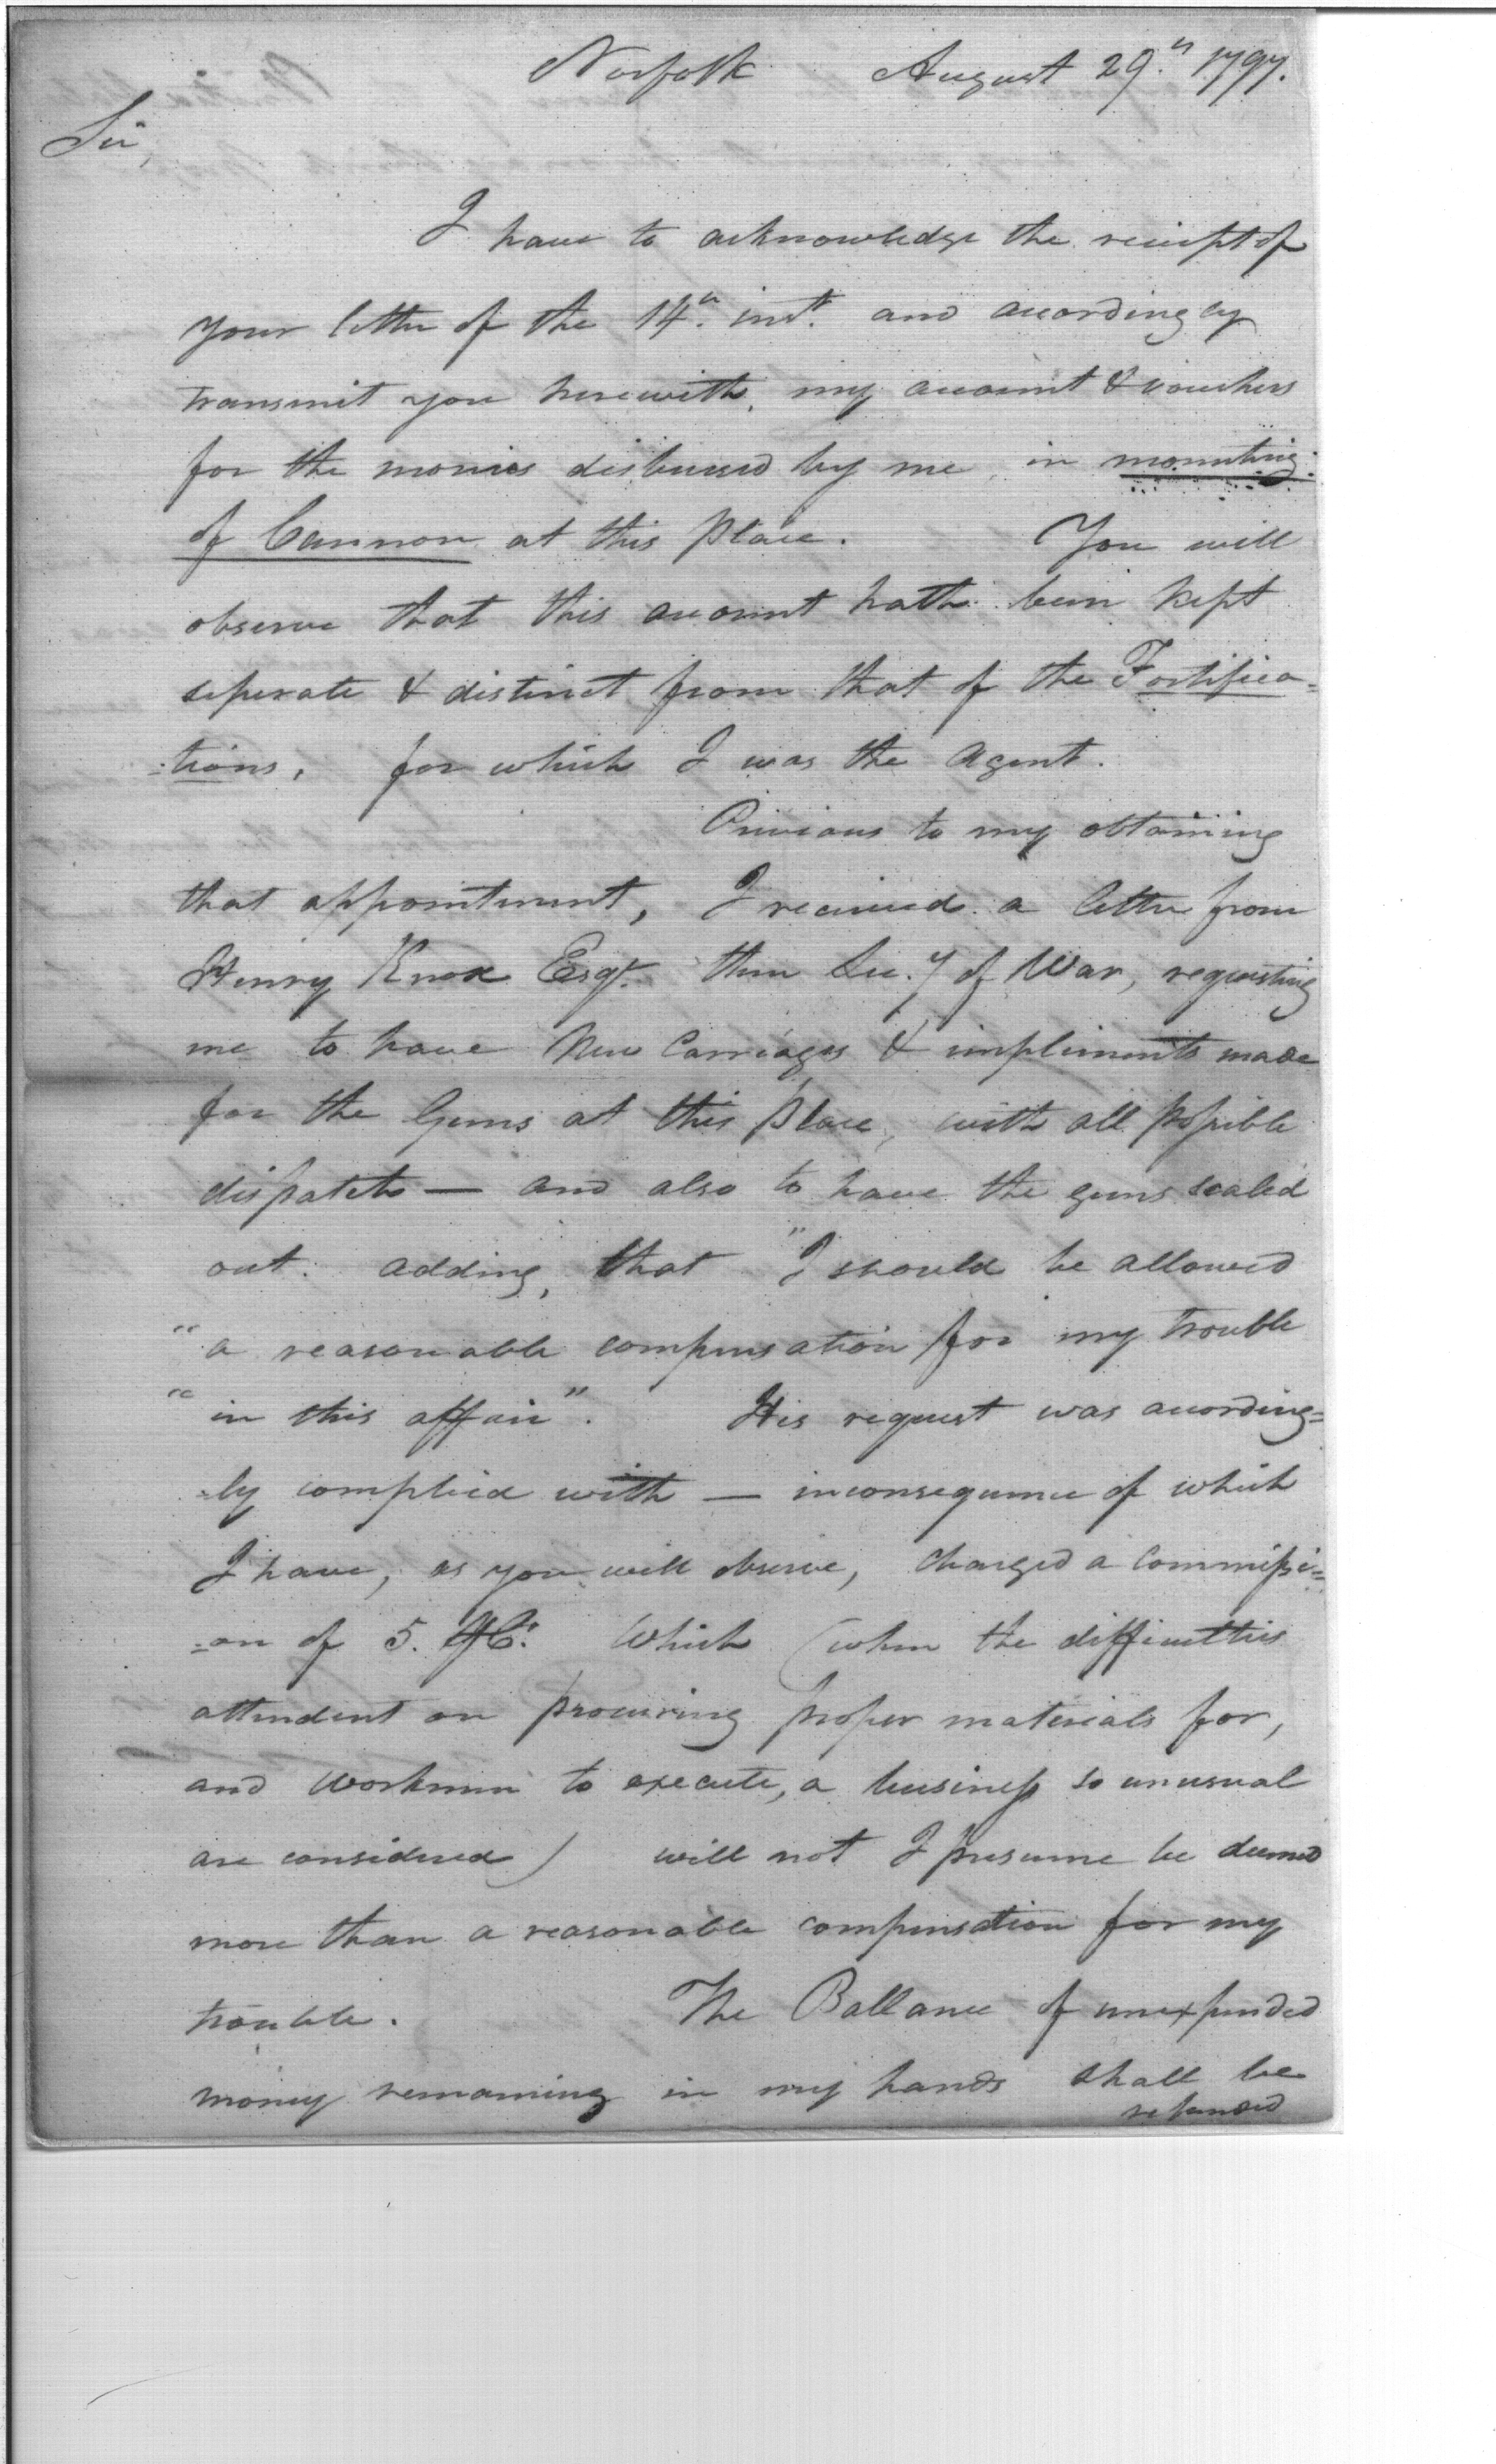 Norfolk August 29.th 1797.
Sir,
I have to acknowledge the receipt of
your letter of the 14.th inst. and accordingly
transmit you herewith, my account & vouchers
for the monies disbursed by me, in mounting
of Cannon at this place. You will
observe that this account hath been kept
seperate & distinct from that of the Fortifica=
=tions, for which I was the agent.
Previous to my obtaining
that appointment, I received a letter from
Henry Knox Esqr. then Sec.y of War, requesting
me to have New Carriages & impliments made
for the Guns at this place, with all possible
dispatch — and also to have the guns scaled
out: adding, that "I should be allowed
"a reasonable compensation for my trouble
"in this affair". His request was according=
=ly complied with — inconsequence of which
I have, as you will observe, charged a Commissi=
=on of 5. Which (when the difficulties
attendent on procuring proper materials for,
and workmen to execute, a business so unusual
are considered) will not I presume be deemed
more than a reasonable compensation for my
trouble. The Ballance of unexpended
money remaining in my hands shall be
refunded